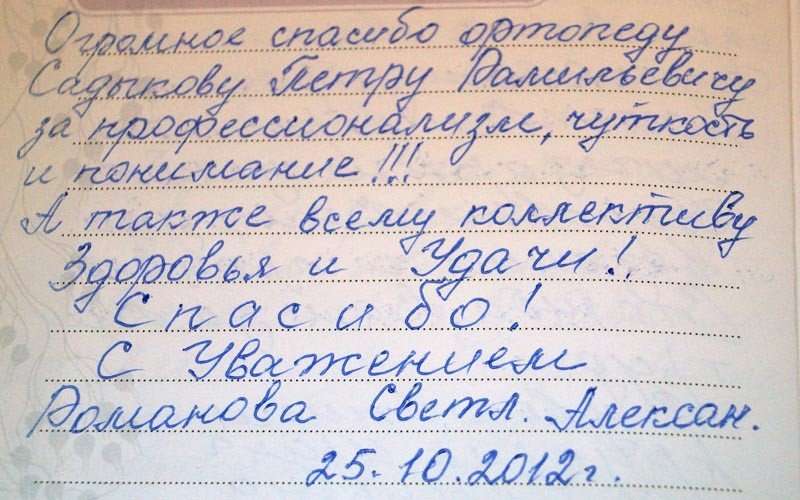 Огромное спасибо ортопеду
Садыкову Петру Рамильевичу
за профессионализм, чуткость
и понимание!!!
А также всему коллективу
Здоровья и Удачи!
Спасибо!
С Уважением
Романова Светл. Алексан.
25.10.2012г.